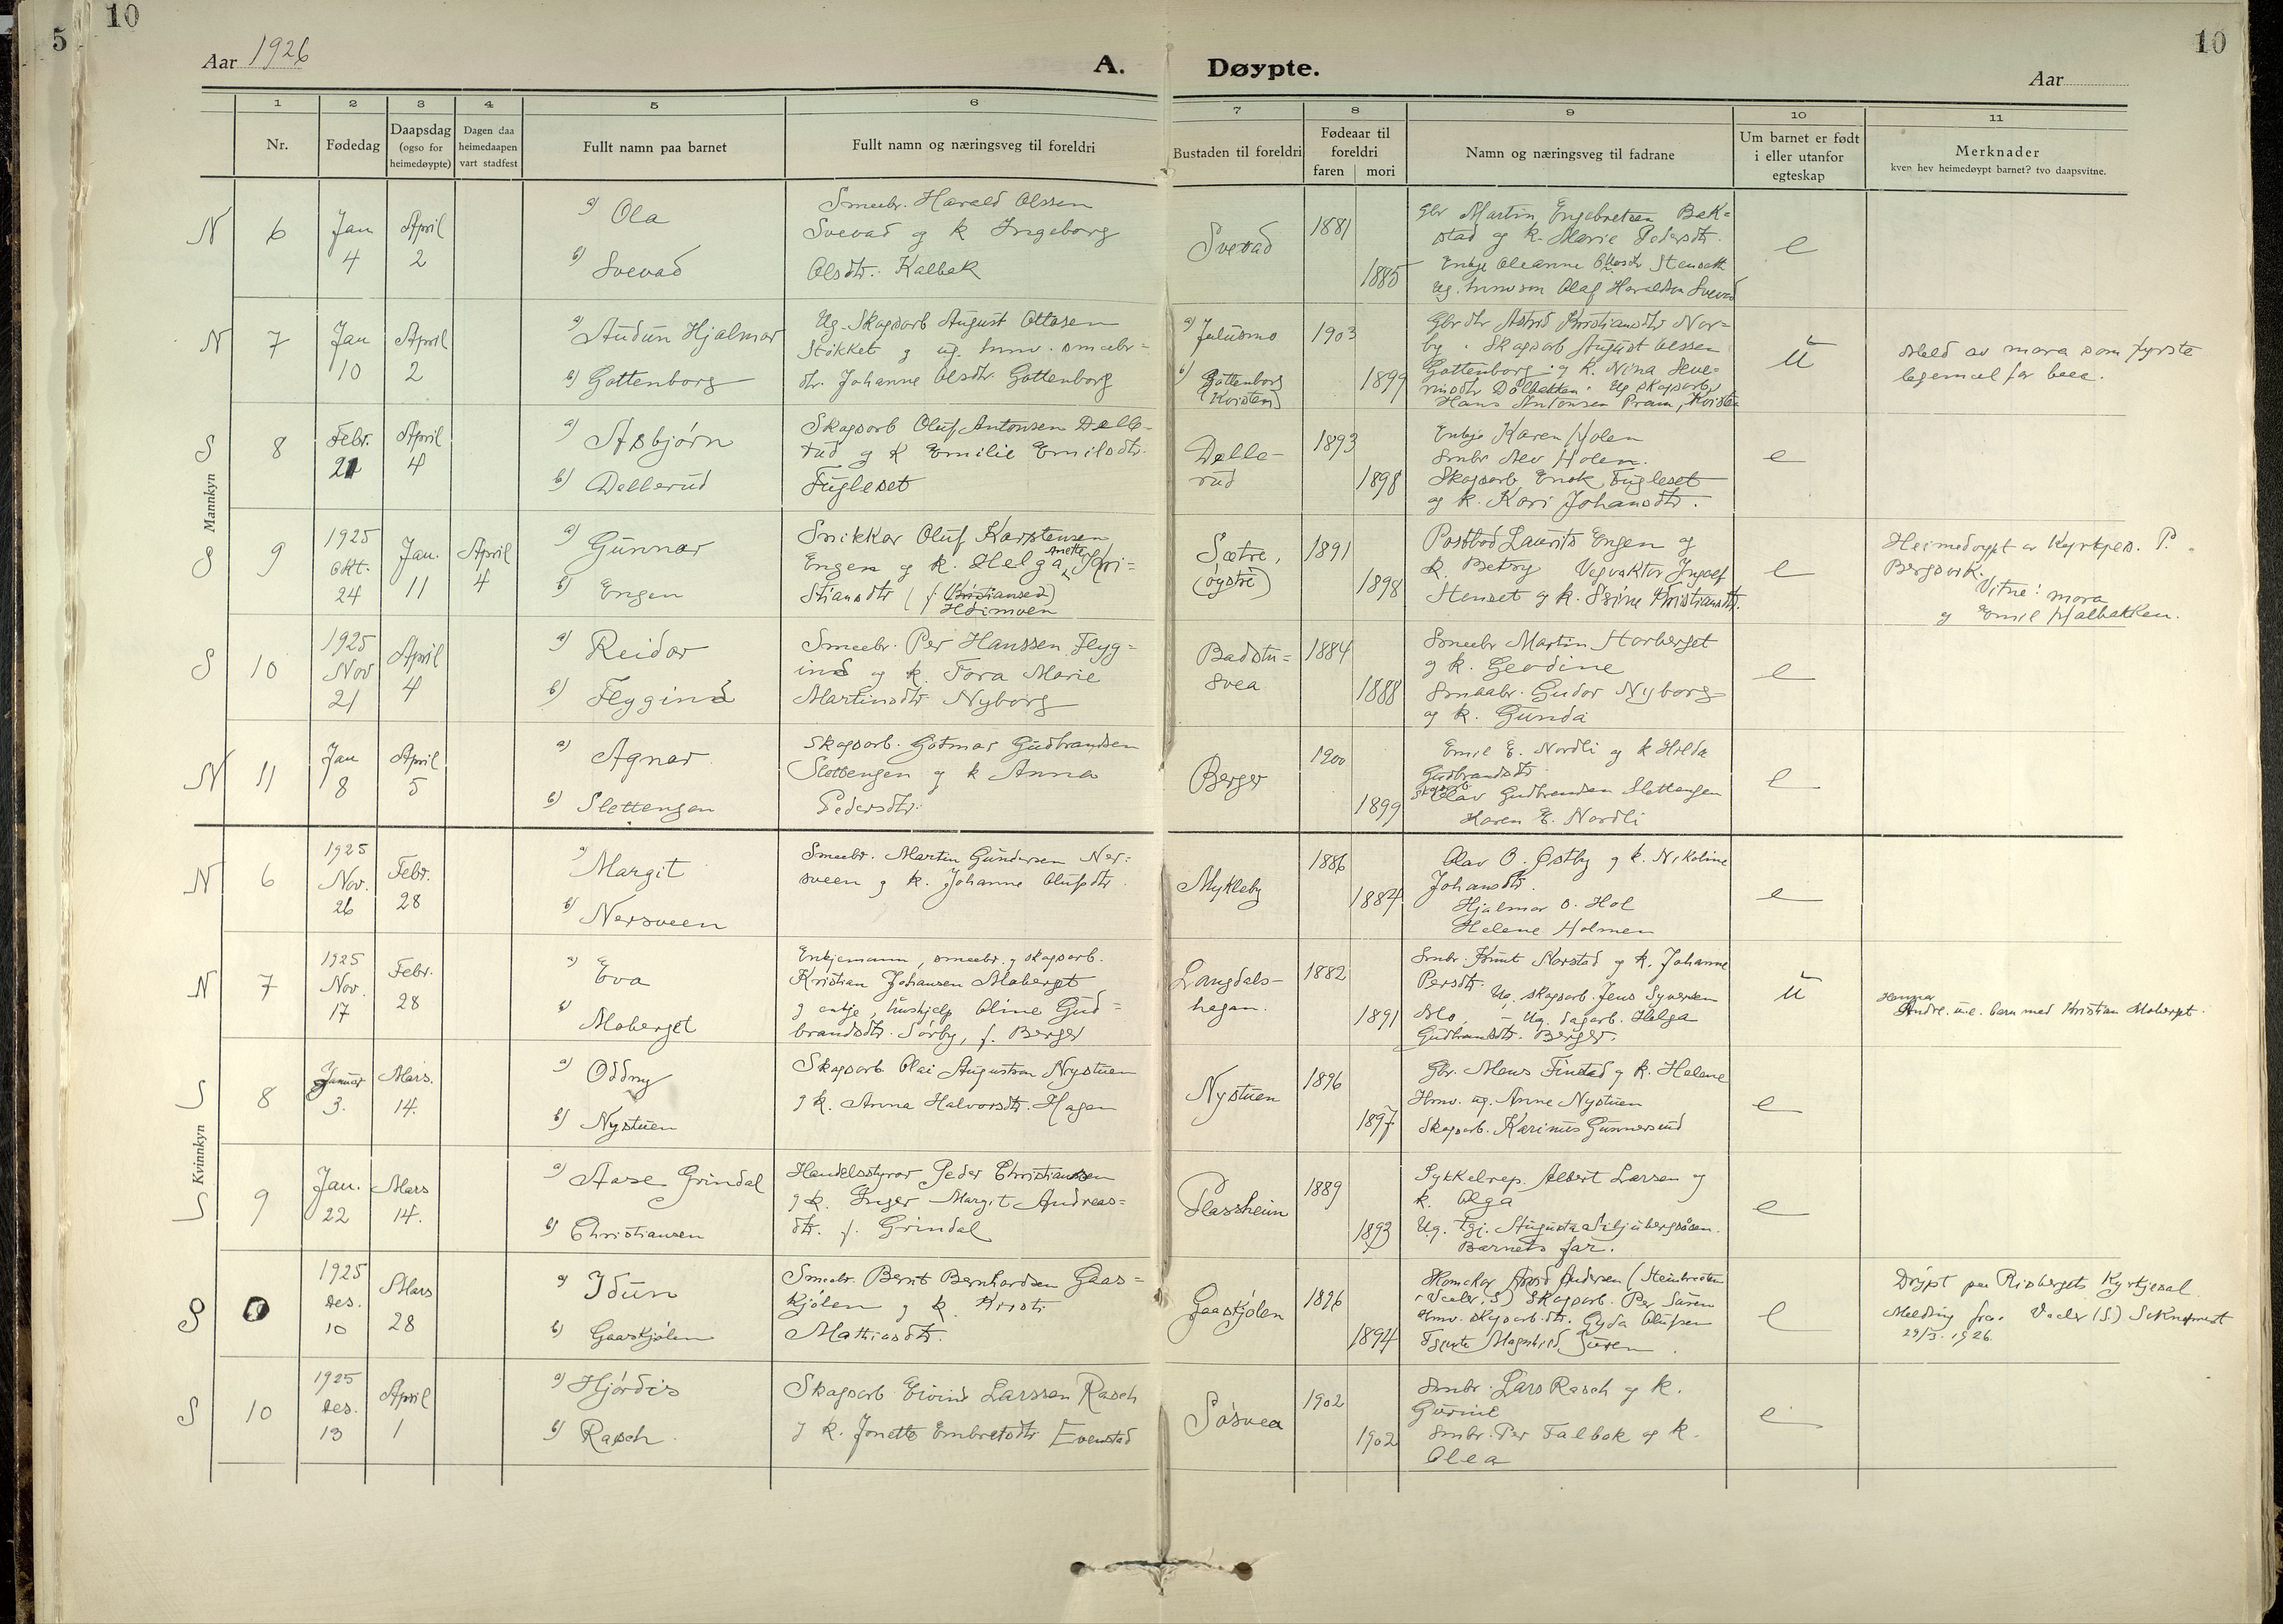 5 10
10
Aar 1926
A. Døypte.
Aar
1 2 3 4 5 6 7 8 9 10 11
Nr.
Fødedag
Daapsdag
(ogso for
heimedøypte)
Dagen daa
heimedaapen
vart stadfest
Fullt namn paa barnet
Fullt namn og næringsveg til foreldri
Bustaden til foreldri
Fødeaar til
foreldri
faren mori
Namn og næringsveg til fadrane
Um barnet er født
i eller utanfor
egteskap
Merknader
kven hev heimedøypt barnet? tvo daapsvitne.
Mannkyn
N 6
Jan
4
April
2
a) Ola
b) Svevad
Smeebr. Harald Olssen
Svevad og k Ingeborg
Olsdtr. Kalbak
Svevad
1881
1885
Gbr Martin Engebretsen Bak=
stad og k. Marie Pedersdtr.
Enkje Oleanne Olsdtr Stenseth
Ug. hmv søn Olaf Haraldsen Svevad
e
N 7
Jan
10
April
2
a) Audun Hjalmar
b) Gottenborg
Ug. Skogsarb August Ottosen
Stökket g ug. hmv. smeebr=
dtr. Johanne Olsdtr. Gottenborg
a) Julusmo
b) Gottenborg
(Kvisten)
1903
1899
Gbr dtr Astrid Kristiansdtr Nor=
by. Skogsarb August Olssen
Gottenborg og k. Nina Seve=
rinsdtr Dølbakken. Ug skogsarb.
Hans Antonsen Pram, Kvisten
u
Meld av mora som fyrste
legemaal for bae.
S 8
Febr.
21
April
4
a) Asbjørn
b) Dellerud
Skogsarb Oluf Antonsen Delle-
rud og k Emilie Emilsdtr.
Fugleset
Delle-
rud
1893
1898
Enkje Karen Holen
Smbr Alv Holen.
Skogsarb Enok Fugleset
og k. Kari Johansdtr.
e
S 9
1925
Okt.
24
Jan.
11
April
4
a) Gunnar
b) Engen
Snikkar Oluf Karstensen
Engen og k. Helga Anette Kri=
stiansdtr (f. Kristiansen)
Heimoen
Sætre,
(øystre)
1891
1898
Postbod Laurits Engen og
k. Betsy Vegvaktar Ingolf
Stenset og k. Signe Kristiansdtr.
e
Heimedøypt av Kyrkjes. P.
Bergsvik.
Vitne: mora
og Emil Halbakken.
S 10
1925
Nov
21
April
4
a) Reidar
b) Flyggind
Smeebr. Per Hanssen Flyg=
ind og k. Tora Marie
Martinsdtr Nyborg
Badstu=
svea
1884
1888
Smeebr Martin Storberget
og k. Geodine
Smaabr. Gudor Nyborg
og k. Gunda
e
N 11
Jan
8
April
5
a) Agnar
b) Slettengen
Skogsarb. Gotmar Gudbrandsen
Slettengen og k Anna
Pedersdtr.
Berger
1900
1899
Emil E. Nordli og k Hilda
Gudbrandsdtr.
Skogsarb Olav Gudbrandsen Slettengen
Karen E. Nordli
e
Kvinnkyn
N 6
1925
Nov.
26
Febr.
28
a) Margit
b) Nersveen
Smeebr. Martin Gundersen Ner=
sveen g k. Johanne Olufsdtr.
Mykleby
1886
1884
Olav O. Østby g k. Nikoline
Johansdtr.
Hjalmar O. Hol
Helene Holmen
e
N 7
1925
Nov.
17
Febr.
28
a) Eva
b) Moberget
Enkjemann, smeebr. g skogsarb.
Kristian Johansen Moberget
g enkje, hushjelp Oline Gud=
brandsdtr. Sørby, f. Berger
Langdals-
hagan.
1882
1891
Smbr. Knut Korstad og k. Johanne
Persdtr. Ug. skogsarb. Jens Syversen
Mo. - Ug. dagarb. Helga
Gudbrandsdtr. Berger.
u
Hennar
Andre. u.e. barn med Kristian Moberget.
S 8
Januar
3.
Mars.
14.
a) Oddny
b) Nystuen
Skogsarb Olai Augustson Nystuen
g k. Anna Halvorsdtr. Hagen
Nystuen
1896
1897
Gbr. Mons Finstad g k. Helene
Hmv. ug. Anne Nystuen
Skogsarb. Karinus Gunnersrud
e
S 9
Jan.
22
Mars
14.
a) Aase Grindal
b) Christiansen
Handelsstyrar Peder Christiansen
g k. Inger Margit Andreas=
dtr. f. Grindal
Plassheim
1889
1893
Sykkelrep. Albert Larsen og
k. Olga
Ug. tgj. Augusta Siljubergsåsen.
Barnets far.
e
S
1925
des.
10
Mars
28
a) Idun
b) Gaaskjølen
Smeebr. Bernt Bernhardsen Gaas=
kjølen g k. Kirsti
Mathiasdtr.
Gaaskjølen
1896
1894
Skomakar Arvid Andersen (Steinbråten
i Vaaler, S) Skogsarb. Per Suren
Hmv. skogsarb.dtr. Gyda Olufsen
Tjente Magnhild Suren.
e
Døypt paa Risberget Kyrkjesal
Melding fraa Vaaler (S.) Sokneprest
29/3. 1926.
S 10
1925
des.
13
April
1
a) Hjørdis
b) Rasch
Skogsarb Eivind Larssen Rasch
g k. Jonette Embretsdtr Evenstad
Søsvea
1902
1902
Smbr. Lars Rasch og k.
Gurine
Smbr. Per Falbak og k.
Olea
e